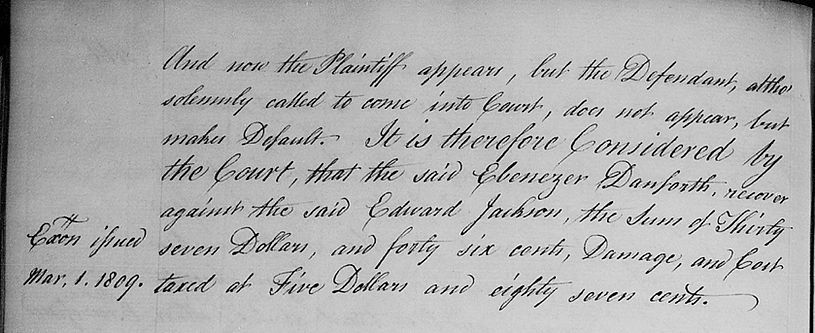 And now the Plaintiff appears, but the Defendant, altho'
solemnly called to come into Court, does not appear, but
makes Default. It is therefore Considered by
the Court, that the said Ebenezer Danforth, recover
against the said Edward Jackson, the Sum of Thirty
seven Dollars, and forty six cents, Damage, and Cost
taxed at Five Dollars and eighty seven cents.
Exõn issued
Mar. 1. 1809.